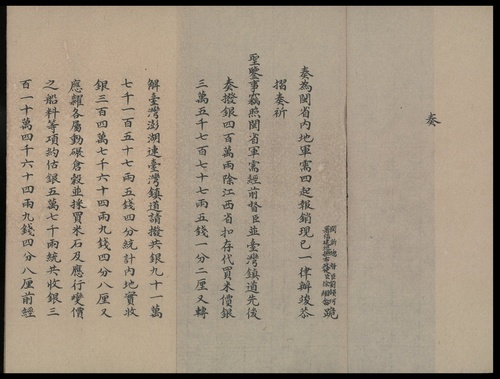 奏
跪
奏為閩省内地軍需四起報銷現已一律辦竣恭
摺奏祈
聖鑒事竊照閩省軍需經前督臣並臺灣鎮道先後
奏撥銀四百萬兩除江西省扣存代買米價銀
三萬五千七百七十七兩五錢一分二厘又轉
解臺灣澎湖連臺灣鎮道請撥共銀九十一萬
七千一百五十七兩五錢四分統計内地實收
銀三百四萬七千六十四兩九錢四分八厘又
應糶各屬動碾倉穀並採買米石及應行變價
之船料等項約估銀五萬七千兩統共收銀三
百一十萬四千六十四兩九錢四分八厘前經